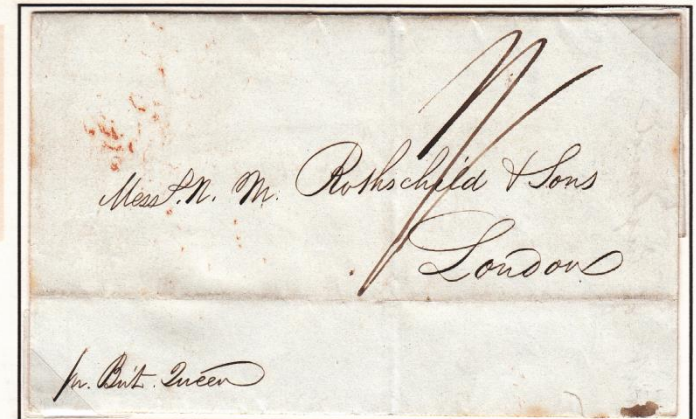 Messrs. N. M. Rothschild & Sons
London
pr. Brit. Queen